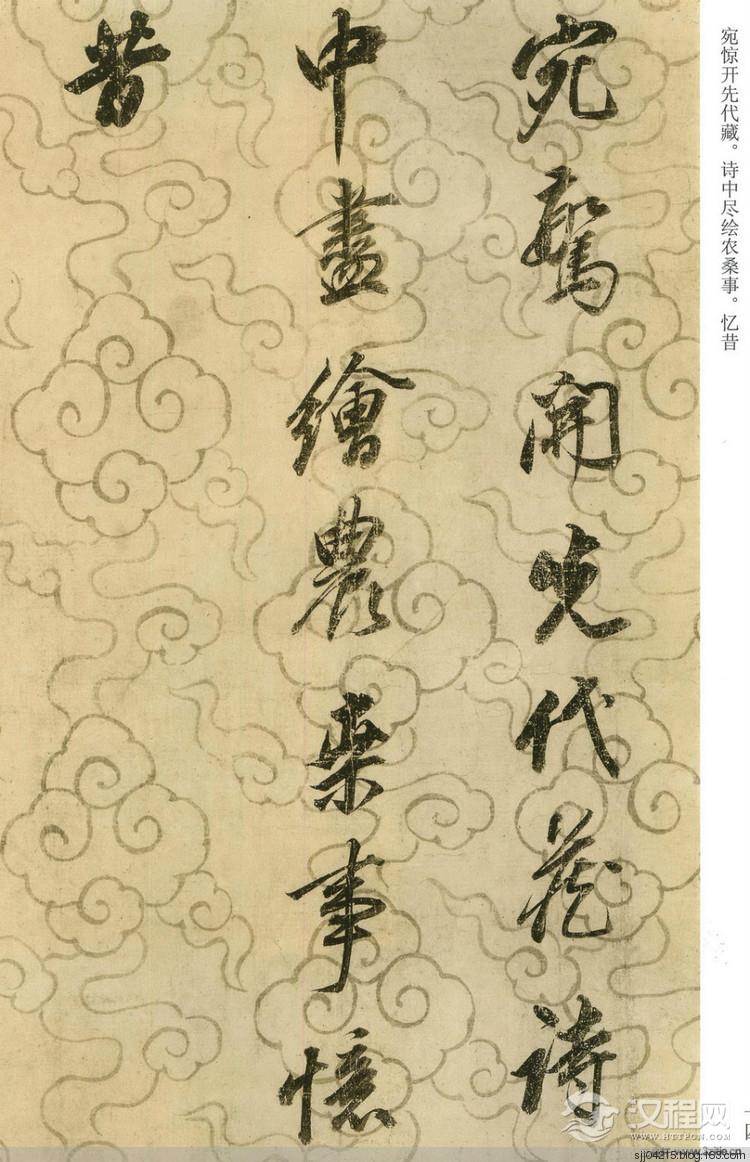 宛驚開先代藏詩
中盡繪農桒事憶
昔
宛惊开先代藏。诗中尽绘农桑事。忆昔
汉程网
WWW.HTTPCN.COM
sjj04215.blog.163.com